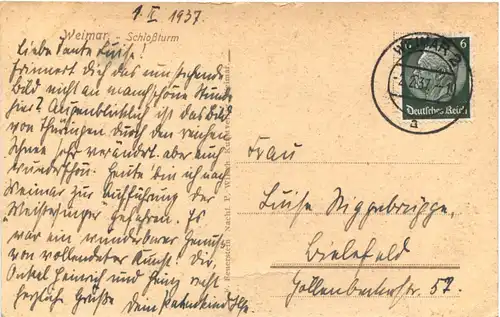 1. II. 1937.
Weimar - Schloßturm
Liebe Tante Luise!
Erinnert Dich das umstehende
Bild nicht an manch schöne Stunde
hier? Augenblicklich ist das Bild
von Thüringen durch den reichen
Schnee sehr verändert aber auch
wunderschön. Heute bin ich nach
Weimar zur Aufführung der
Meistersinger gefahren. Es
war ein wunderbarer Genuss
von vollendeter Kunst. Dir,
Onkel Heinrich und Heinz recht
herzliche Grüße Dein Patenkind
Feuerstein Nachf. P. Weimar
WEIMAR 2
a
6
Deutsches Reich
Frau
Luise Niggebrügge,
Bielefeld
Gellenbeckerstr. 52.